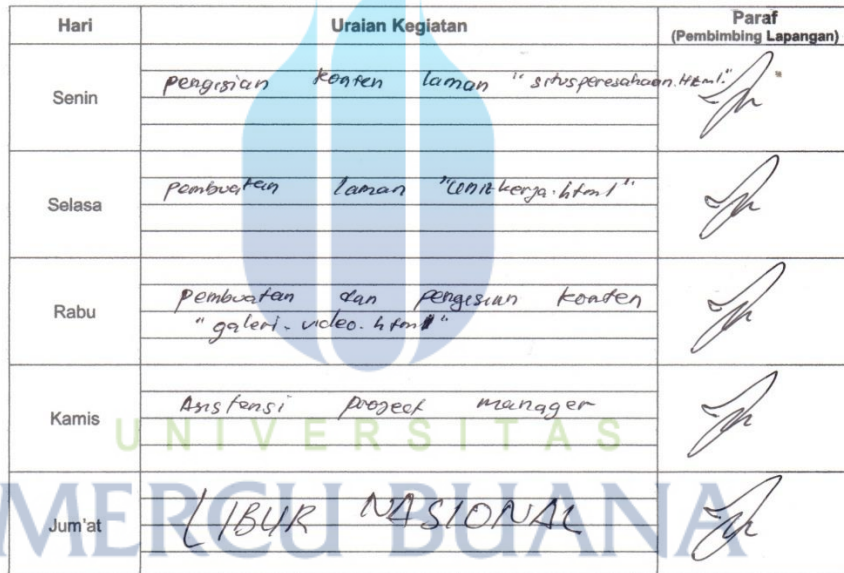 Hari Uraian Kegiatan Paraf
(Pembimbing Lapangan)
Senin pengisian konten laman "situsperusahaan.Html."
Selasa pembuatan laman
Rabu pembuatan dan pengisian konten
"galeri-video.html"
Kamis Asistensi project manager
UNIVERSITAS
Jum'at LIBUR NASIONAL
MERCU BUANA